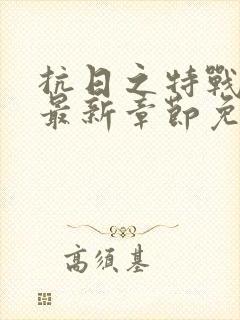 抗日之特戰
最新章節免
高須基